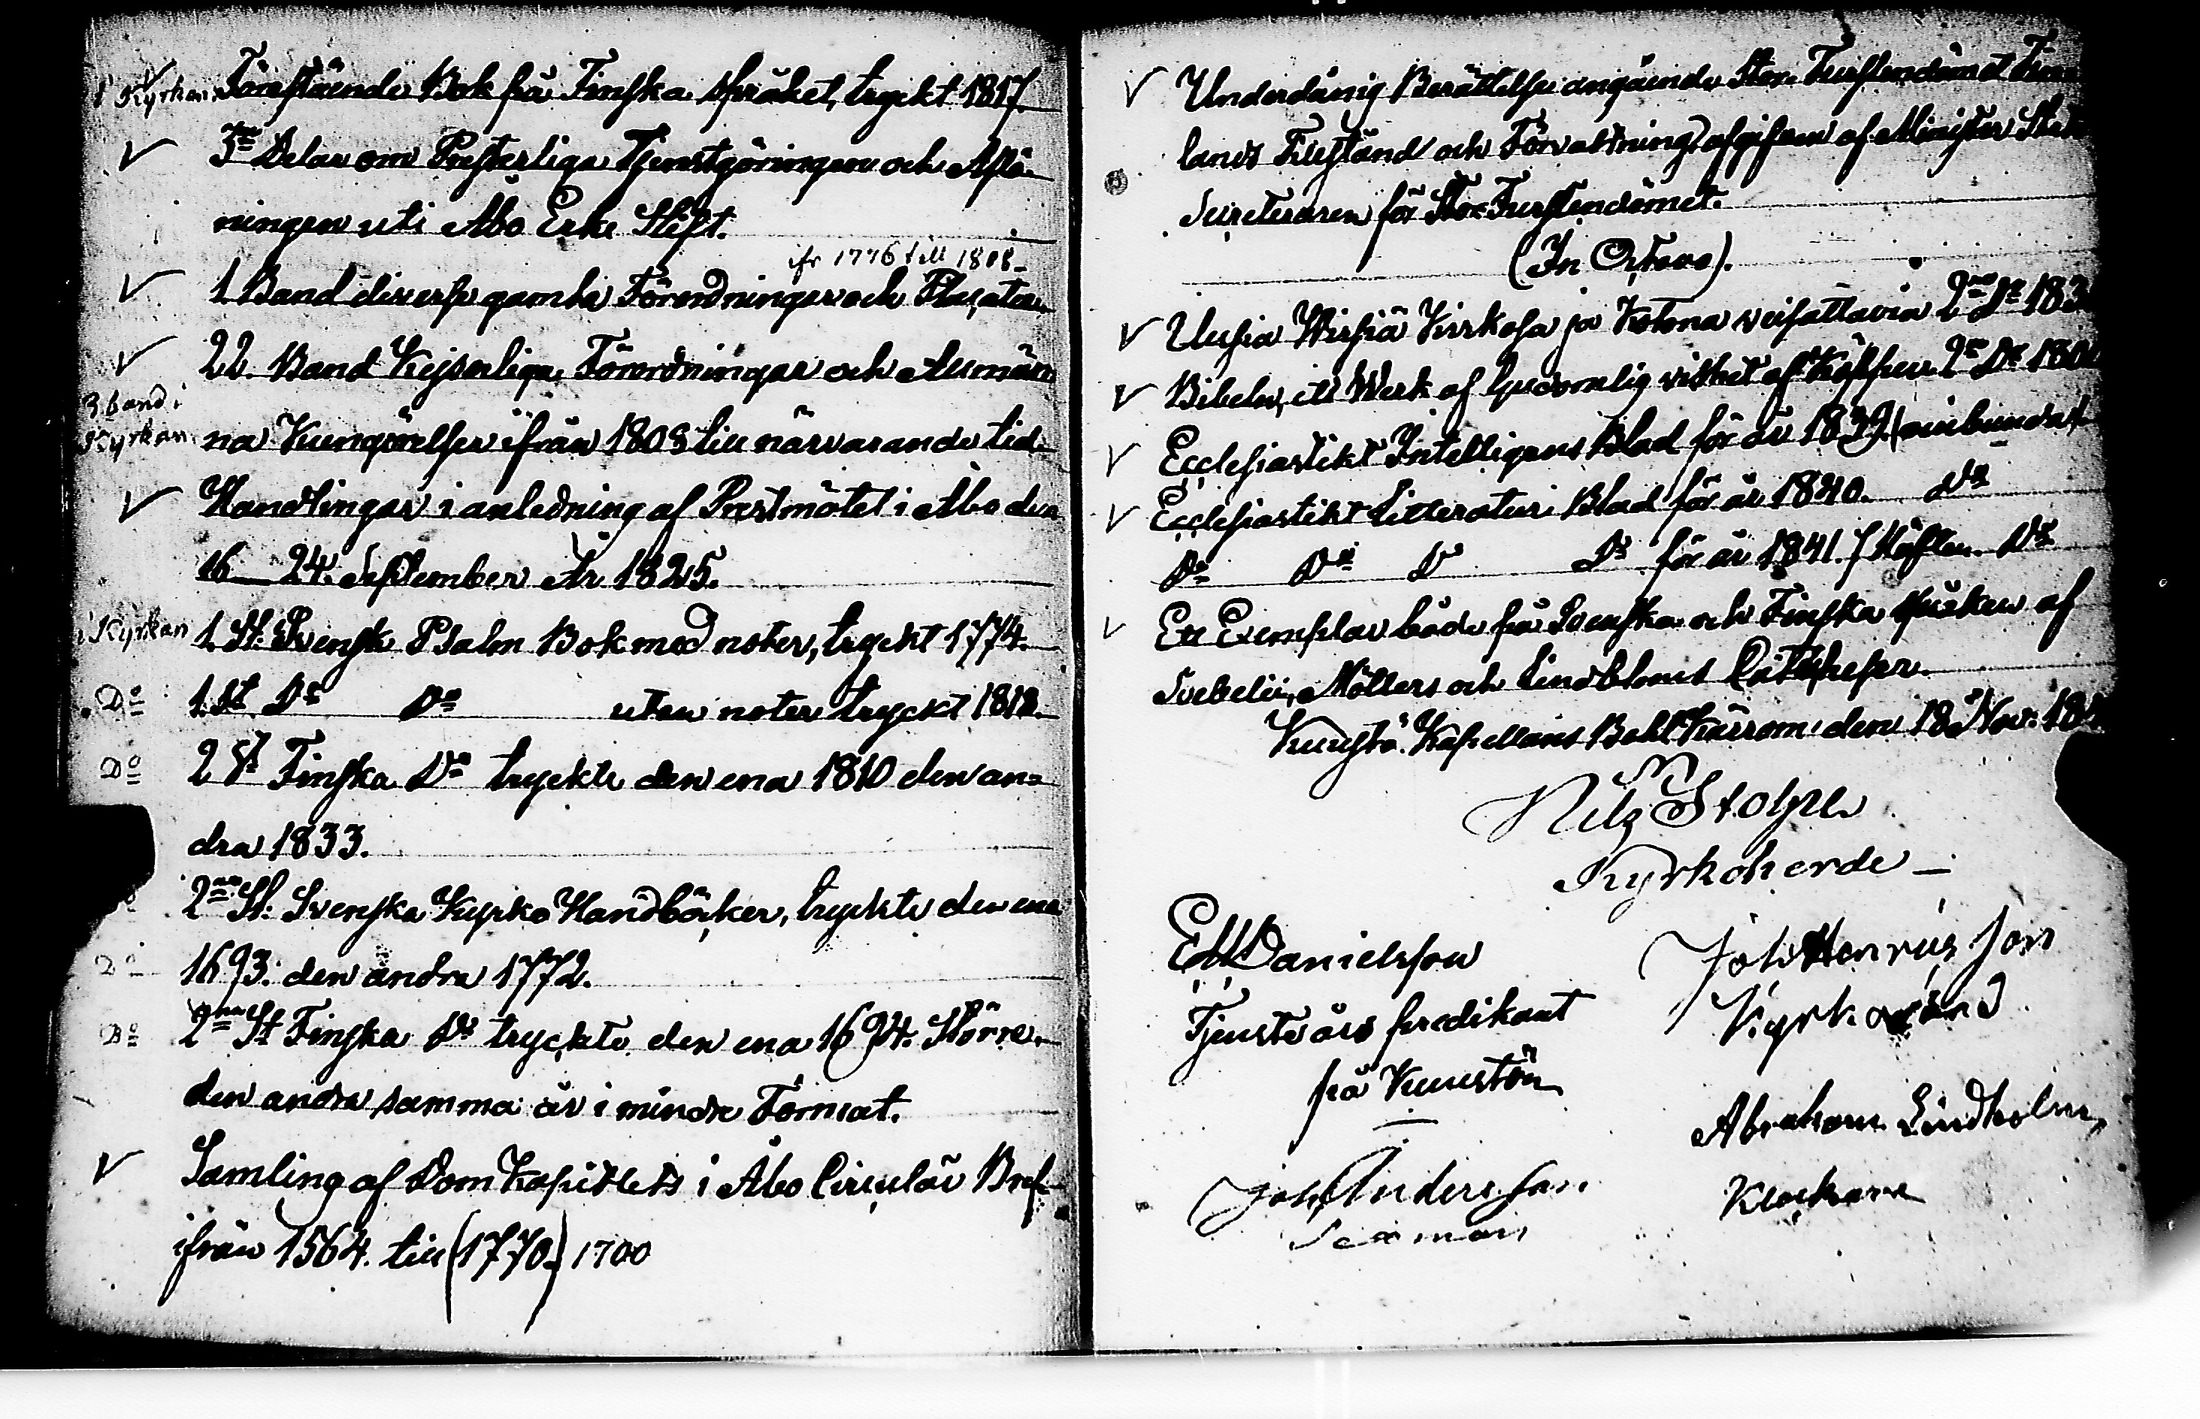 i Kyrkan Förestående Bok på Finska språket, tryckt 1817.
3ne Delar om Presterliga Tjenstgöringen och Aflö-
ningen uti Åbo Erke Stift.
ifr 1776 till 1808
1 Band diverse gamla Förordningar och Placater.
22. Band Kejserliga Förordningar och Allmän-
3 band i
Kyrkan
na Kungörelser ifrån 1808 till närvarande tid.
Handlingar i anledning af Prestmötet i Åbo den
16 24. September År 1825.
i Kyrkan 1 St. Svensk Psalm Bok med noter, tryckt 1774.
Do 1 St Do Do utan noter tryckt 1810.
Do 2 St Finska Do tryckte den ena 1810 den an=
dra 1833.
2ne St: Svenska Kyrko Handböcker, tryckte den ena
Do 1693. den andra 1772.
Do 2ne St Finska Do tryckte den ena 1694. Större,
den andra samma år i mindre Format.
Samling af Dom Kapitlets i Åbo Circulär Bref
ifrån 1564. till (1770.) 1700
Underdånig Berättelse angående Stor Furstendömet Finn
lands Tillstånd och Förvaltning afgifven af Minister Stats
Secreteraren för Stor Furstendömet.
(In Octavo).
Uusia Wirsiä Kirkosa ja Kotona veisattavia 2ne Do 183
Bibeln, ett Werk af Gudomelig vishet af Köppen 2ne De 180
Ecclesiastikt Intelligens Blad för år 1839 (oinbundet
Ecclesiastikt Litteratur Blad för år 1840. Do
Do Do D Do för år 1841. 7 Häften. Do
Ett Exemplar både på Svenska och Finska Språken af
Svebelii, Möllers och Lindbloms Catekeser.
Kustö Kapellans Bohl Kärrom den 18 Nov: 18
Nils Stolpe
Kyrkoherde
E M Danielsson
Tjenste års predikant
på Kuustön
Joh Henricsson
Kyrkovärd
Abraham Lindholm,
Klockare
Joh Andersson
Sexman